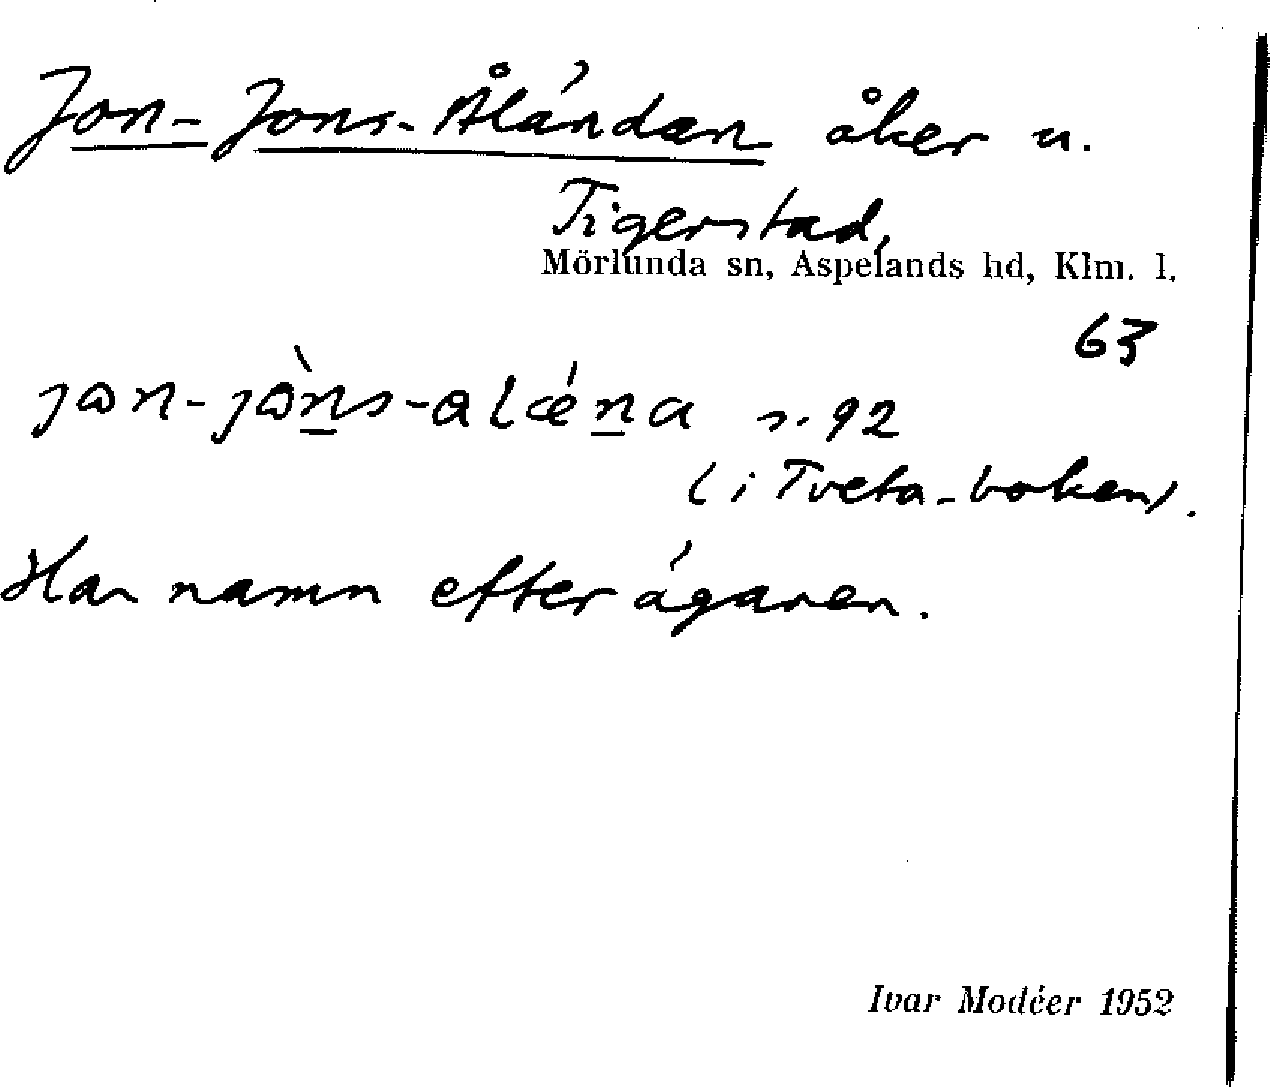 Jon-Jons-Åländan åker u.
Tigerstad,
Mörlunda sn, Aspelands hd, Klm. l.
63
jɷn-jɷ̀n̲s-alǽn̲a s. 92
(i Tveta-boken).
Har namn efter ägaren.
Ivar Modéer 1952